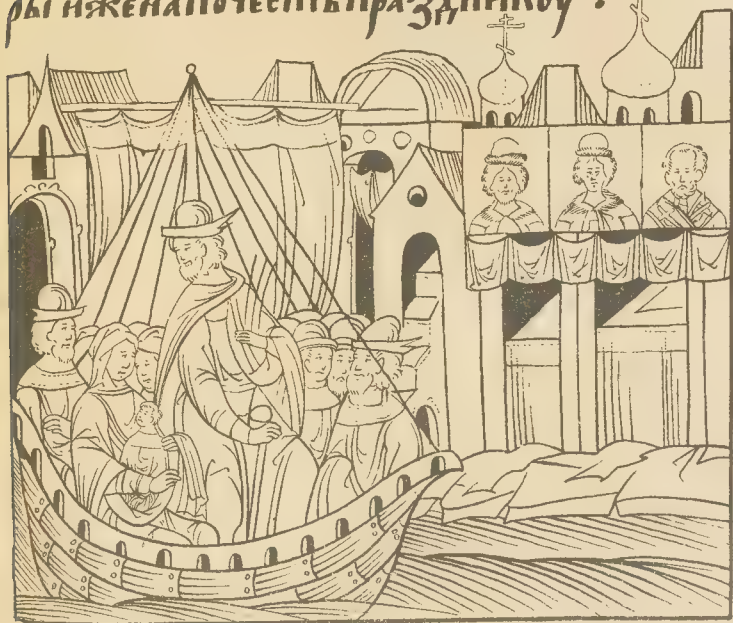 ры и жена почести праздникоу .